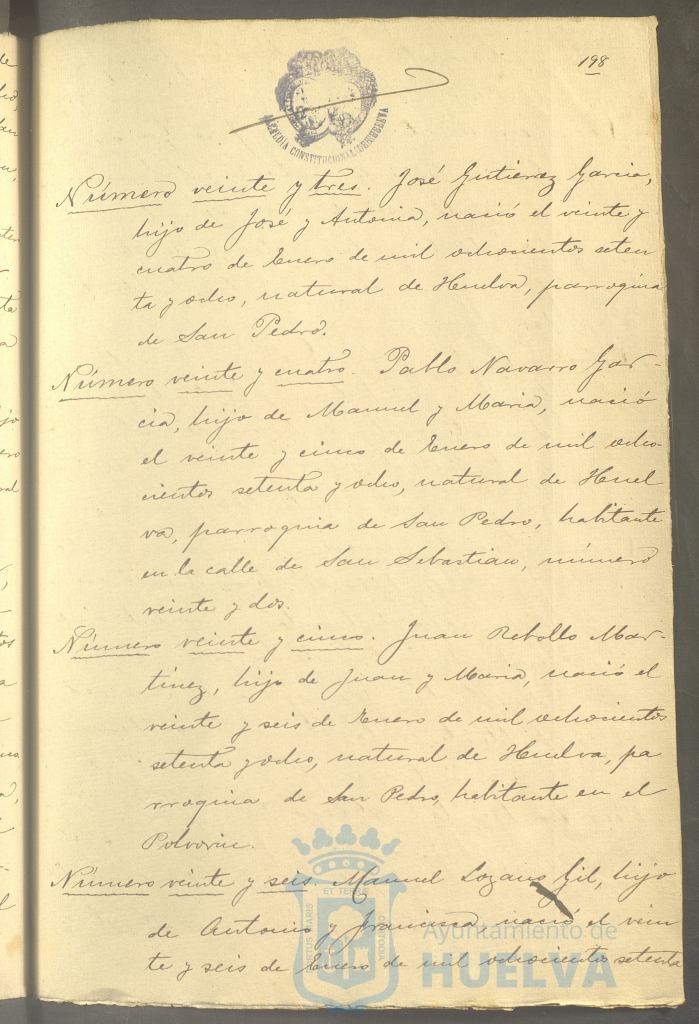 198
ALCALDIA CONSTITUCIONAL DE HUELVA
Número veinte y tres. José Gutierrez Garcia,
hijo de José y Antonia, nació el veinte y
cuatro de Enero de mil ochocientos seten
ta y ocho, natural de Huelva, parroquia
de San Pedro.
Número veinte y cuatro. Pablo Navarro Gar-
cia, hijo de Manuel y Maria, nació
el veinte y cinco de Enero de mil ocho-
cientos setenta y ocho, natural de Huel
va, parroquia de San Pedro, habitante
en la calle de San Sebastian, número
veinte y dos.
Número veinte y cinco. Juan Rebollo Mar-
tinez, hijo de Juan y Maria, nació el
veinte y seis de Enero de mil ochocientos
setenta y ocho, natural de Huelva, pa
rroquia de San Pedro, habitante en el
Polvorin.
Número veinte y seis Manuel Lozano Gil, hijo
de Antonio y Francisca nació el vein
te y seis de Enero de mil ochocientos setenta
Ayuntamiento de
HUELVA